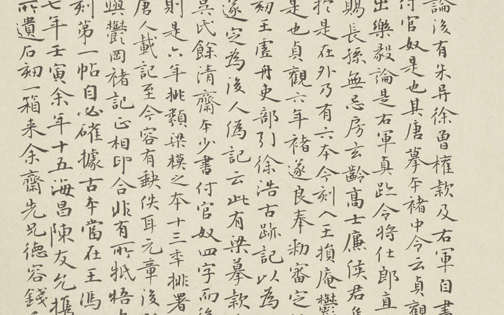 論後有朱异徐僧權款及右軍自書
付官奴是也其唐摹本褚中令云貞觀
出樂毅論是右軍真跡令將仕郎直
賜長孫無忌房玄齡高士廉侯君集
於是在外乃有六本今刻入王損庵鬱
是也貞觀六年褚遂良奉勑審定
初王虛舟吏部引徐浩古跡記以為
遂定為後人偽記云此有梁摹款
吳氏餘清齋本少書付官奴四字而後
則是六年排類梁模之本十三年排署
唐人載記至今容有缺佚耳元章後
與鬱岡褚記正相印合非有所牴牾
刻第一帖自必確據古本當在王馮
七年壬寅余年十五海昌陳友允攜
所遺石刻一箱来余齋先兄德容錢